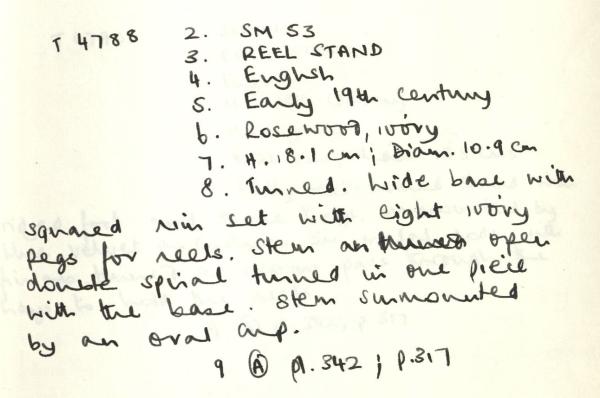 T 4788 2. SM 53
3. REEL STAND
4. English
5. Early 19th century
6. Rosewood, ivory
7. H. 18.1 cm; Diam. 10.9 cm
8. Turned. Wide base with
squared rim set with eight ivory
pegs for reels. Stem an open
double spiral turned in one piece
with the base. Stem surmounted
by an oval cup.
9 Ⓐ pl. 342; p. 317